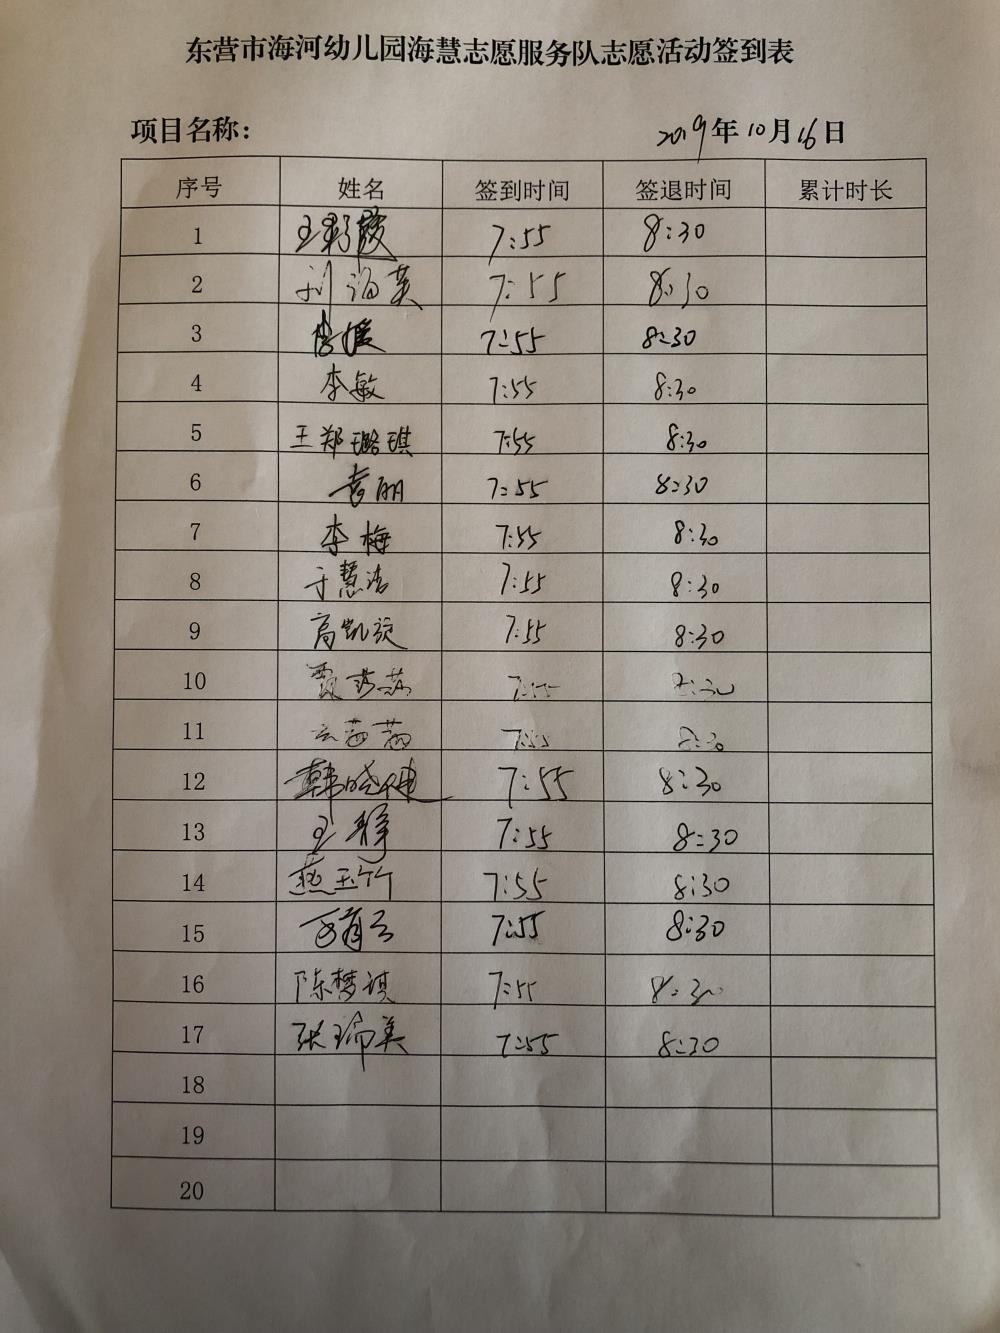 东营市海河幼儿园海慧志愿服务队志愿活动签到表
项目名称: 2019年10月16日
序号 姓名 签到时间 签退时间 累计时长
1 王彩霞 7:55 8:30
2 刘海英 7:55 8:30
3 李媛 7:55 8:30
4 李敏 7:55 8:30
5 王郑璐琪 7:55 8:30
6 袁丽 7:55 8:30
7 李梅 7:55 8:30
8 于慧洁 7:55 8:30
9 高凯旋 7:55 8:30
10 7:55 8:30
11 7:55 8:30
12 韩晓健 7:55 8:30
13 王静 7:55 8:30
14 燕玉竹 7:55 8:30
15 7:55 8:30
16 陈梦琪 7:55 8:30
17 张瑞美 7:55 8:30
18
19
20